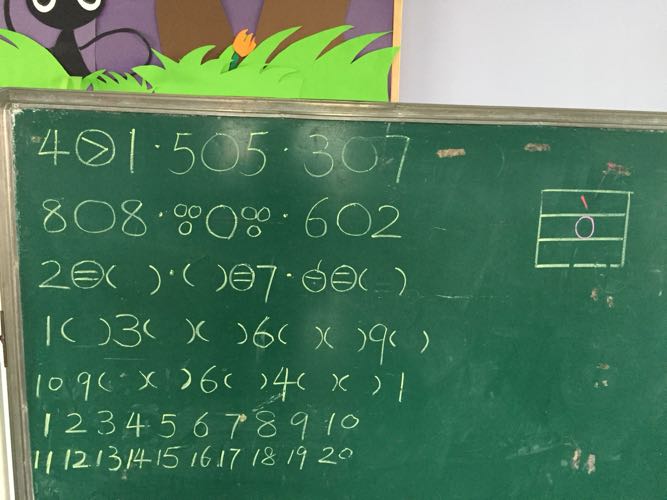 4>1·5○5·3○7
8○8·○○○○○○○·6○2
2=( )·( )=7·÷=( )
1( )3( )( )6( )( )9( )
10 9( )( )6( )4( )( )1
1 2 3 4 5 6 7 8 9 10
11 12 13 14 15 16 17 18 19 20